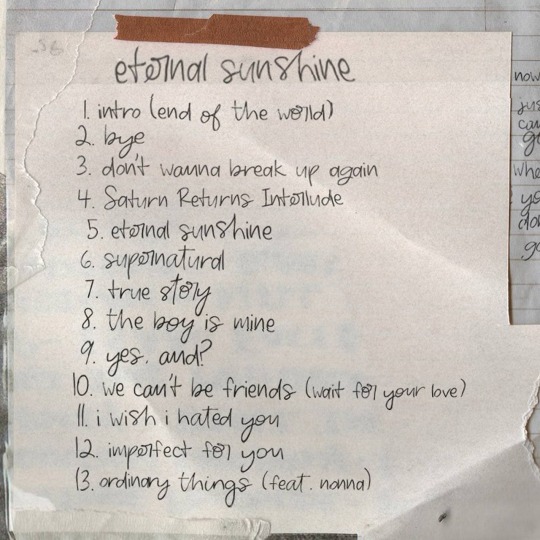 eternal sunshine
1. intro (end of the world)
2. bye
3. don't wanna break up again
4. Saturn Returns Interlude
5. eternal sunshine
6. supernatural
7. true story
8. the boy is mine
9. yes, and?
10. we can't be friends (wait for your love)
11. i wish i hated you
12. imperfect for you
13. ordinary things (feat. nonna)
now